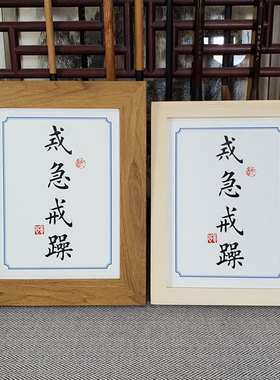 戒急戒躁
戒急戒躁